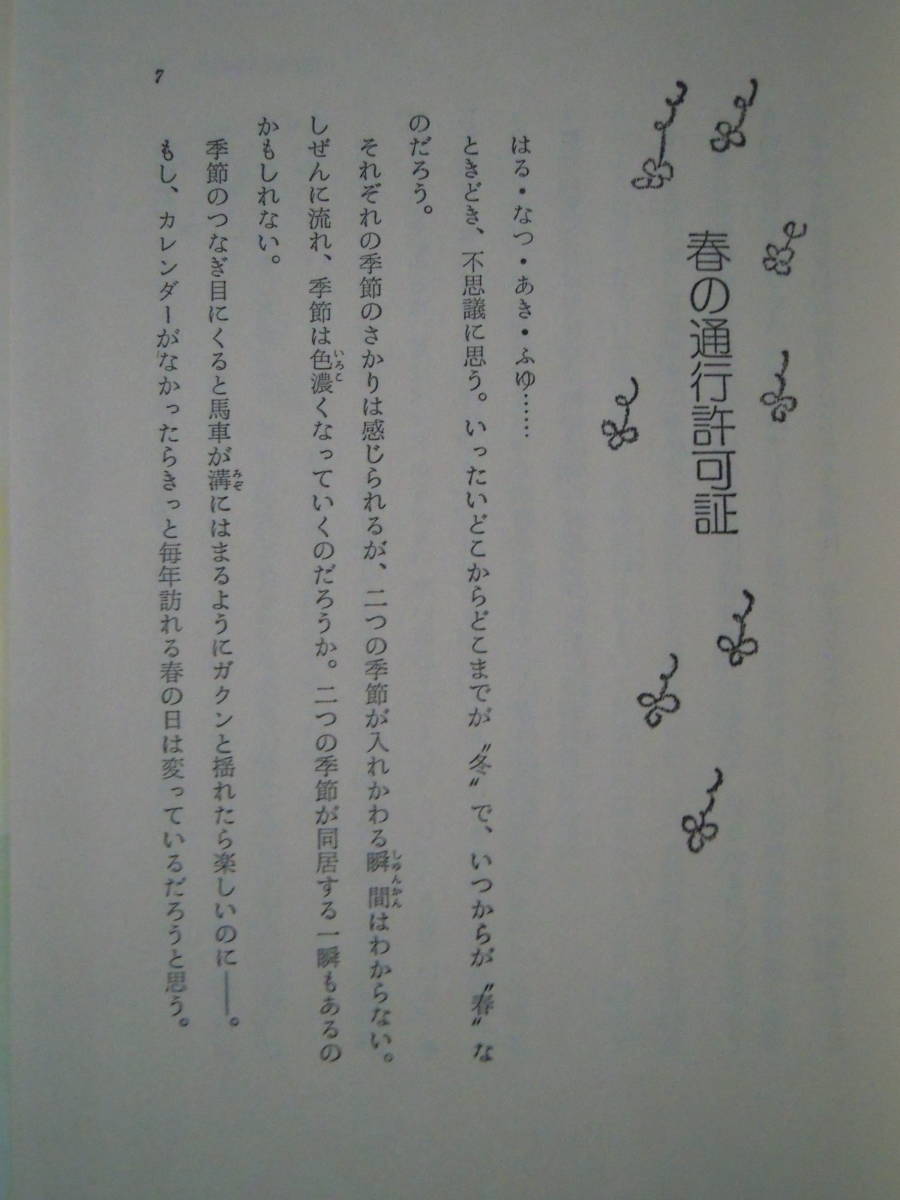 春の通行許可証
はる・なつ・あき・ふゆ……
ときどき、不思議に思う。いったいどこからどこまでが〝冬〟で、いつからが〝春〟な
のだろう。
それぞれの季節のさかりは感じられるが、二つの季節が入れかわる瞬間はわからない。
しゅんかん
しぜんに流れ、季節は色濃くなっていくのだろうか。二つの季節が同居する一瞬もあるの
いろこ
かもしれない。
季節のつなぎ目にくると馬車が溝にはまるようにガクンと揺れたら楽しいのに――。
みぞ
もし、カレンダーがなかったらきっと毎年訪れる春の日は変っているだろうと思う。
7